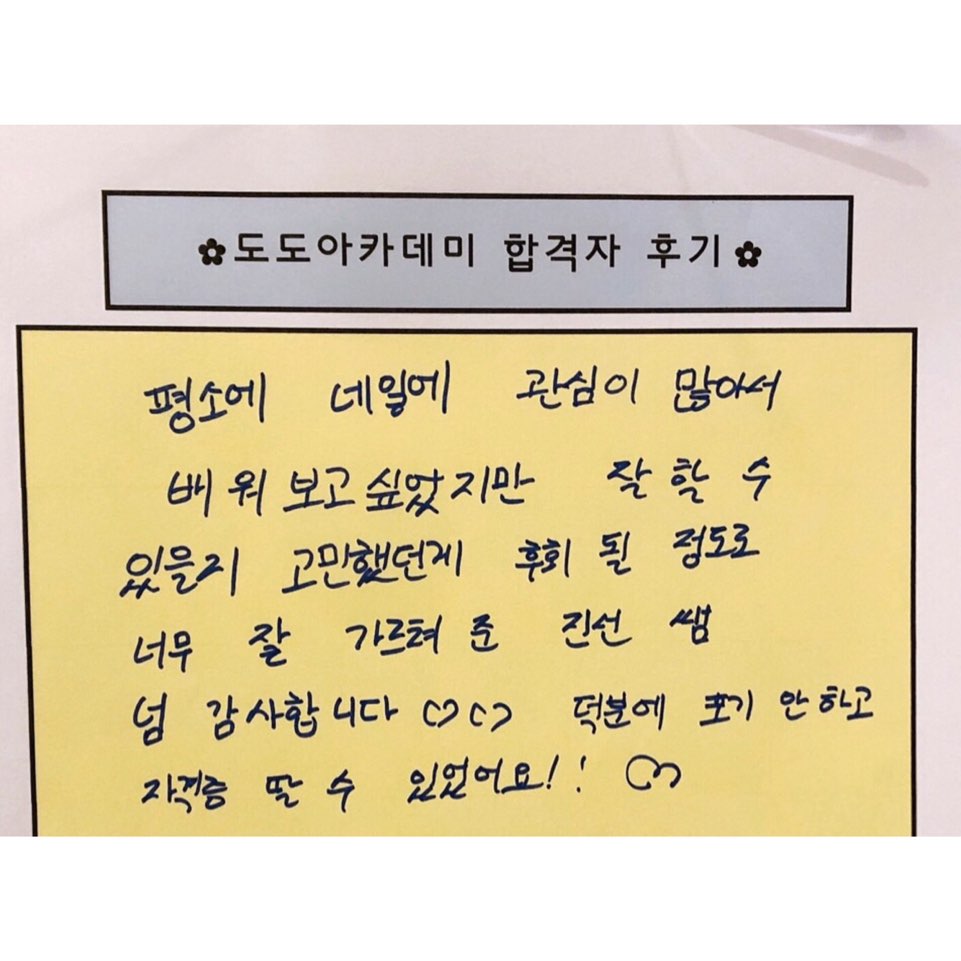 ✿도도아카데미 합격자 후기✿
평소에 네일에 관심이 많아서
배워 보고싶었지만 잘 할 수
있을지 고민했던게 후회 될 정도로
너무 잘 가르텨 준 진선 쌤
넘 감사합니다 ♡♡ 덕분에 포기 안하고
자격증 딸 수 있었어요!! ♡